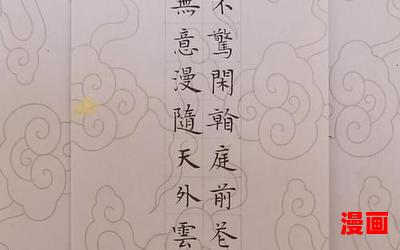 不驚閑庭前花
無意漫隨天外雲
漫画